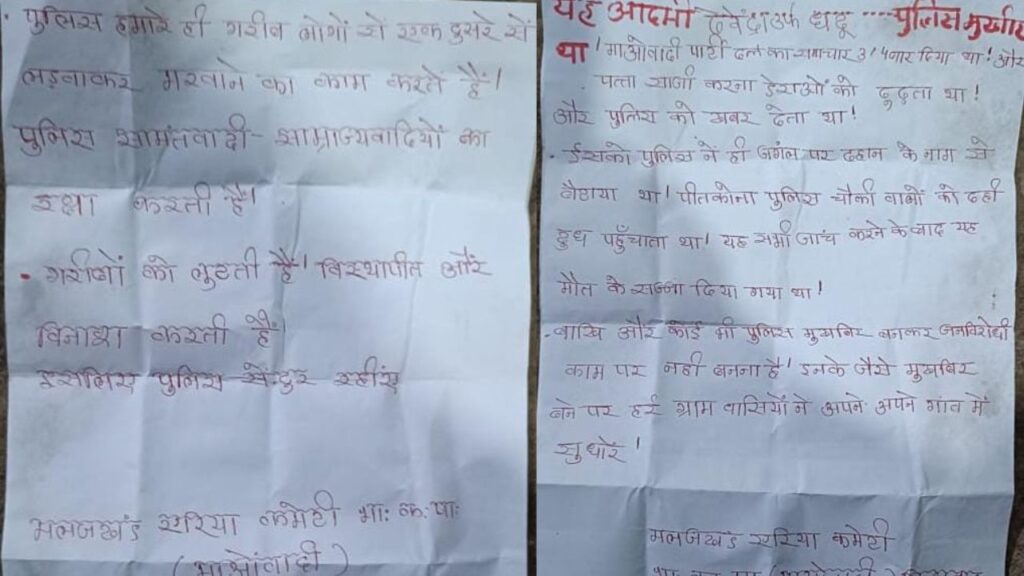 पुलिस हमारे ही गरीब लोगों से एक दुसरे से
लड़वाकर मरवाने का काम करते हैं।
पुलिस सामंतवादी - साम्राज्यवादियों का
रक्षा करती है।
• गरीबों को लुटती हैं। विस्थापीत और
विनाश करती हैं।
इसलिए पुलिस से दुर रहीए
मलाजखंड एरिया कमेटी भा: क: पा:
(माओवादी)
यह आदमी देवेंद्र उर्फ धदू ---- पुलिस मुखबीर
था। माओवादी पार्टी दल का समाचार 3/4 बार दिया था। और
पत्ता साजी करना डेराओं को ढुढ़ता था।
और पुलिस को खबर देता था।
• ईसको पुलिस ने ही जंगल पर दहान के नाम से
बैठाया था। पीतकोना पुलिस चौकी वालों को दही
दुध पहुँचाता था। यह सभी जांच करने के बाद यह
मौत के सज्जा दिया गया था।
• बाकि और कोई भी पुलिस मुखबिर बनकर जनविरोधी
काम पर नहीं बनना है। इनके जैसे मुखबिर
बने पर हर ग्राम वासियों ने अपने अपने गांव में
सुधारें।
मलाजखंड एरिया कमेटी